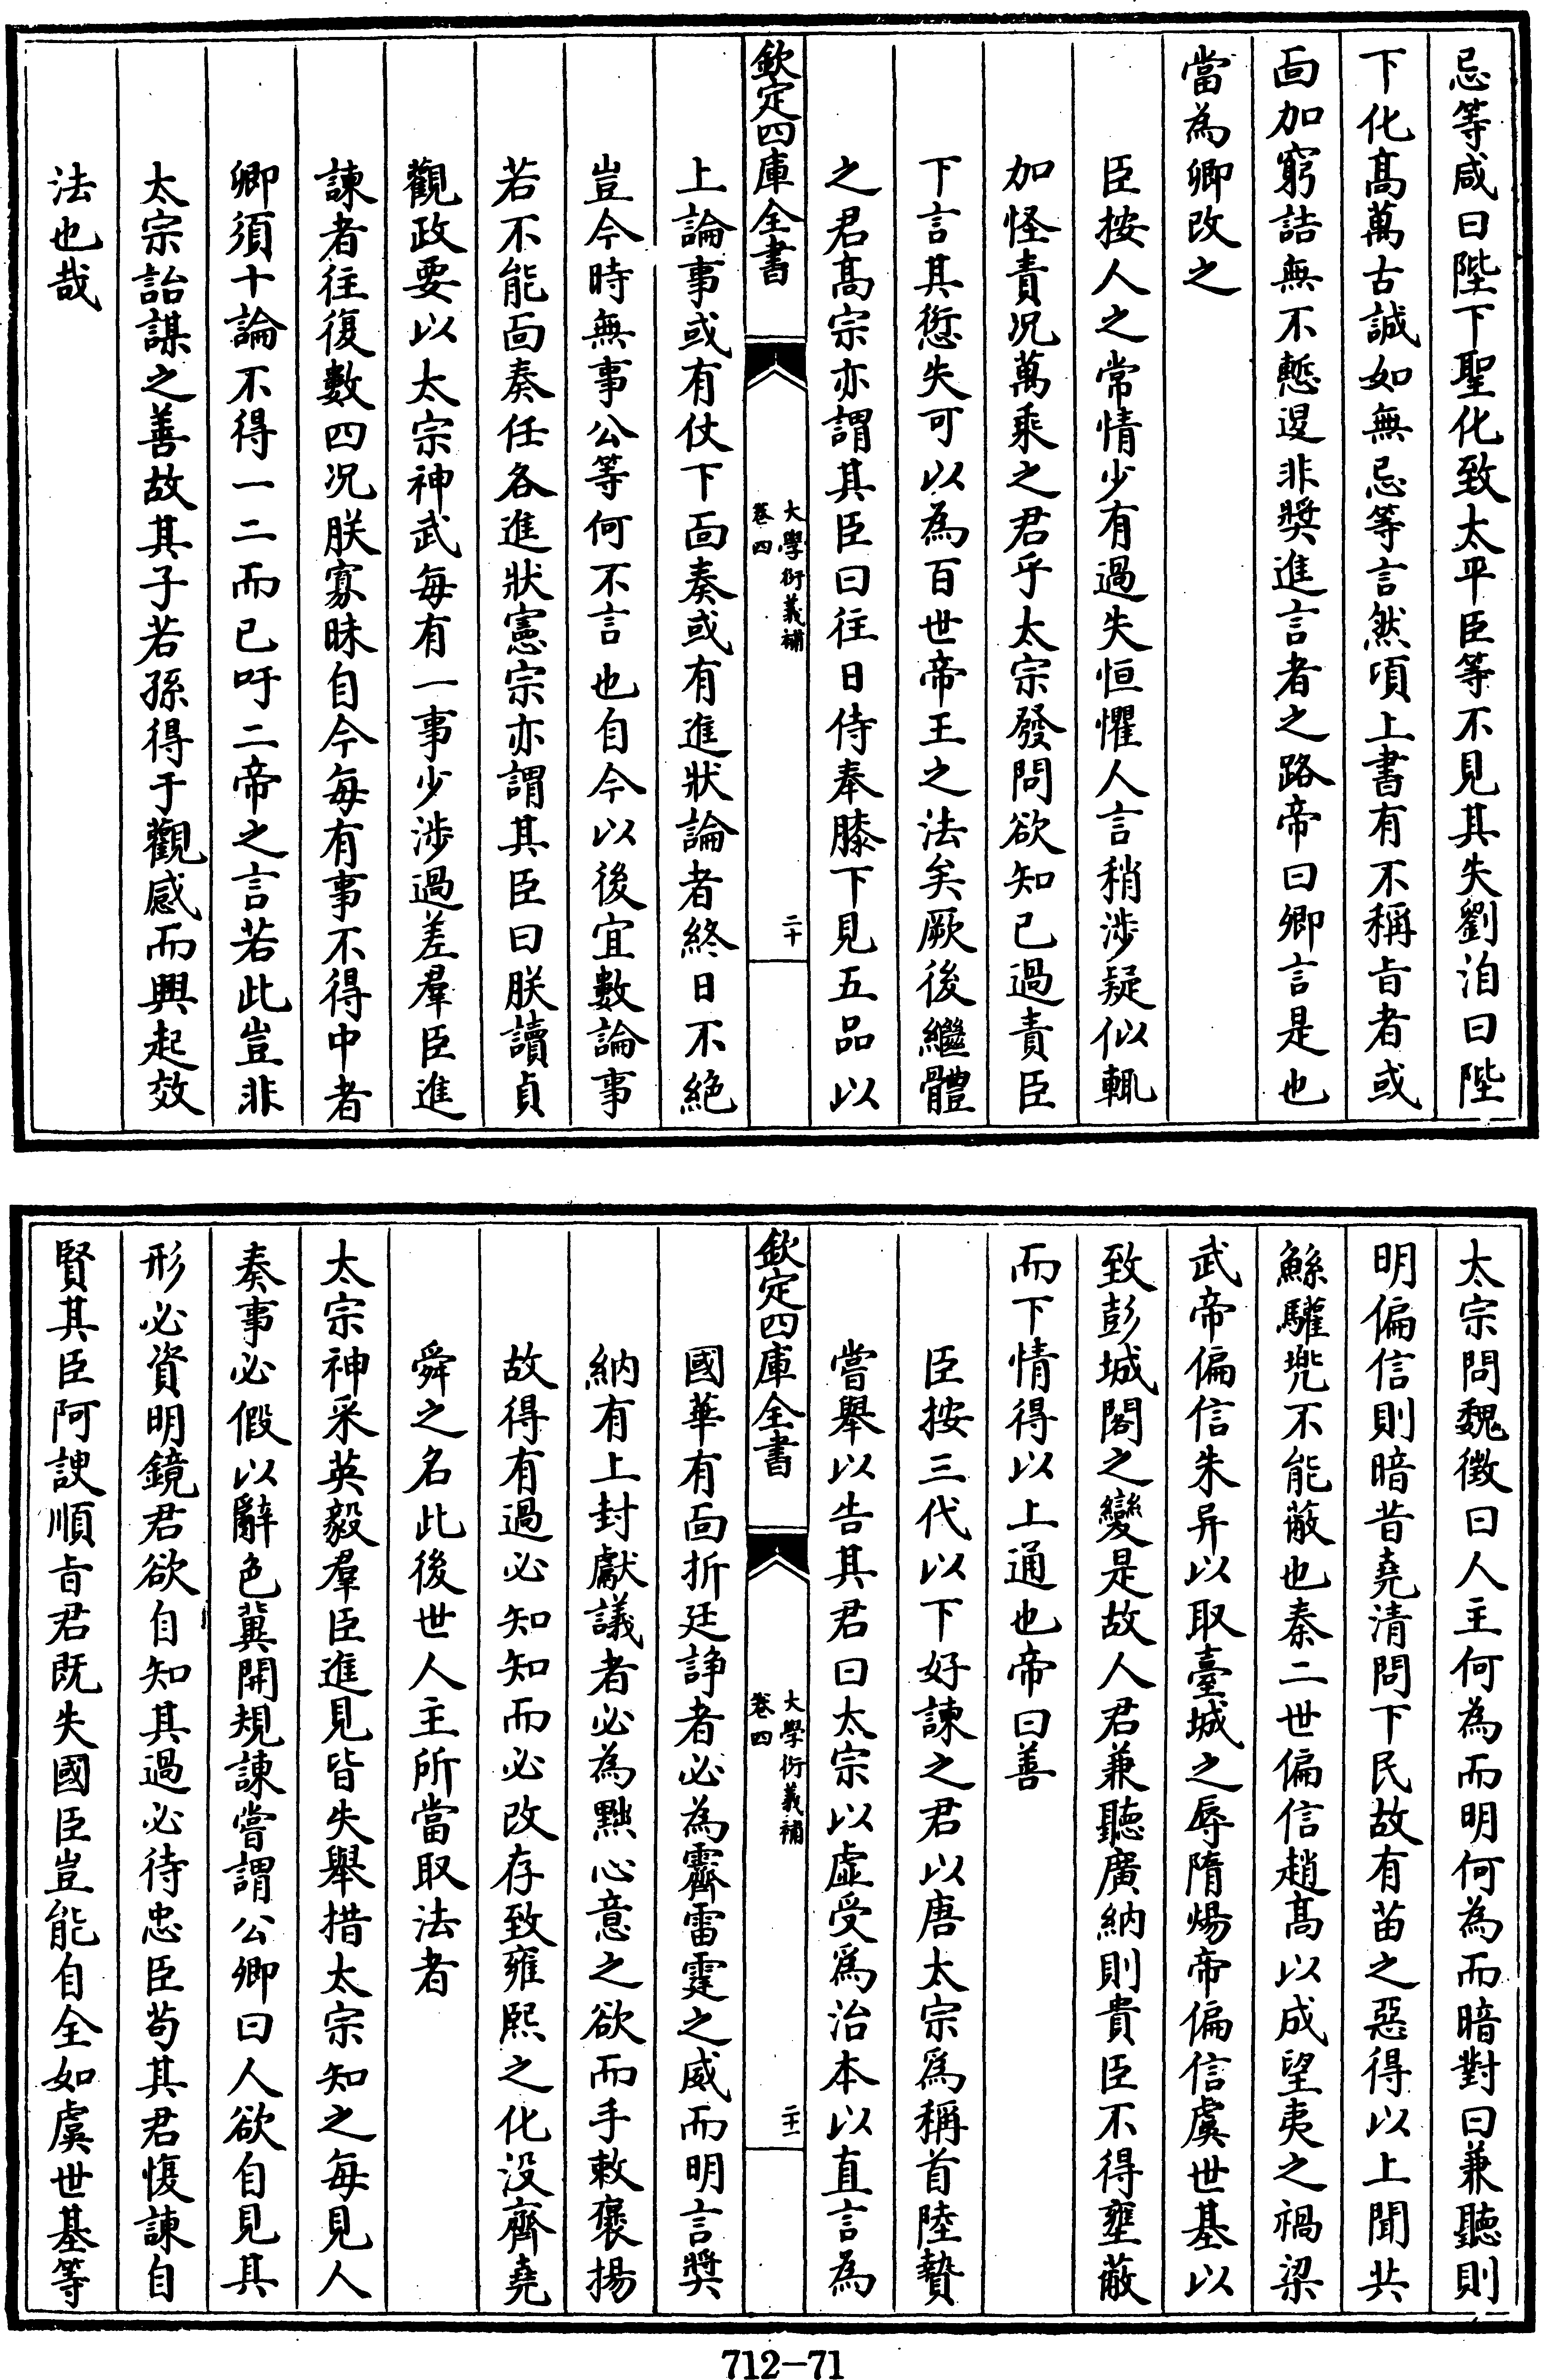 忌等咸曰陛下聖化致太平臣等不見其失劉洎曰陛
下化髙萬古誠如無忌等言然頃上書有不稱㫖者或
面加窮詰無不慙退非奬進言者之路帝曰卿言是也
當為卿改之
臣按人之常情少有過失恒懼人言稍涉疑似輒
加怪責况萬乘之君乎太宗發問欲知已過責臣
下言其愆失可以為百世帝王之法矣厥後繼體
之君髙宗亦謂其臣曰往日侍奉膝下見五品以
欽定四庫全書
大學衍義補
卷四
二十
上論事或有仗下面奏或有進狀論者終日不絶
豈今時無事公等何不言也自今以後宜數論事
若不能面奏任各進狀憲宗亦謂其臣曰朕讀貞
觀政要以太宗神武每有一事少涉過差羣臣進
諫者往復數四况朕寡昧自今每有事不得中者
卿須十論不得一二而已吁二帝之言若此豈非
太宗詒謀之善故其子若孫得于觀感而興起效
法也哉
太宗問魏徴曰人主何為而明何為而暗對曰兼聽則
明偏信則暗昔堯清問下民故有苗之惡得以上聞共
鯀驩兜不能蔽也秦二世偏信趙髙以成望夷之禍梁
武帝偏信朱异以取臺城之辱隋煬帝偏信虞世基以
致彭城閣之變是故人君兼聽廣納則貴臣不得壅蔽
而下情得以上通也帝曰善
臣按三代以下好諫之君以唐太宗為稱首陸贄
嘗舉以告其君曰太宗以虚受為治本以直言為
欽定四庫全書
大學衍義補
卷四
二十一
國華有面折廷諍者必為霽雷霆之威而明言奬
納有上封獻議者必為黜心意之欲而手敕褒揚
故得有過必知知而必改存致雍熙之化没齊堯
舜之名此後世人主所當取法者
太宗神采英毅羣臣進見皆失舉措太宗知之每見人
奏事必假以辭色冀聞規諫嘗謂公卿曰人欲自見其
形必資明鏡君欲自知其過必待忠臣茍其君愎諫自
賢其臣阿諛順㫖君既失國臣豈能自全如虞世基等
712-71